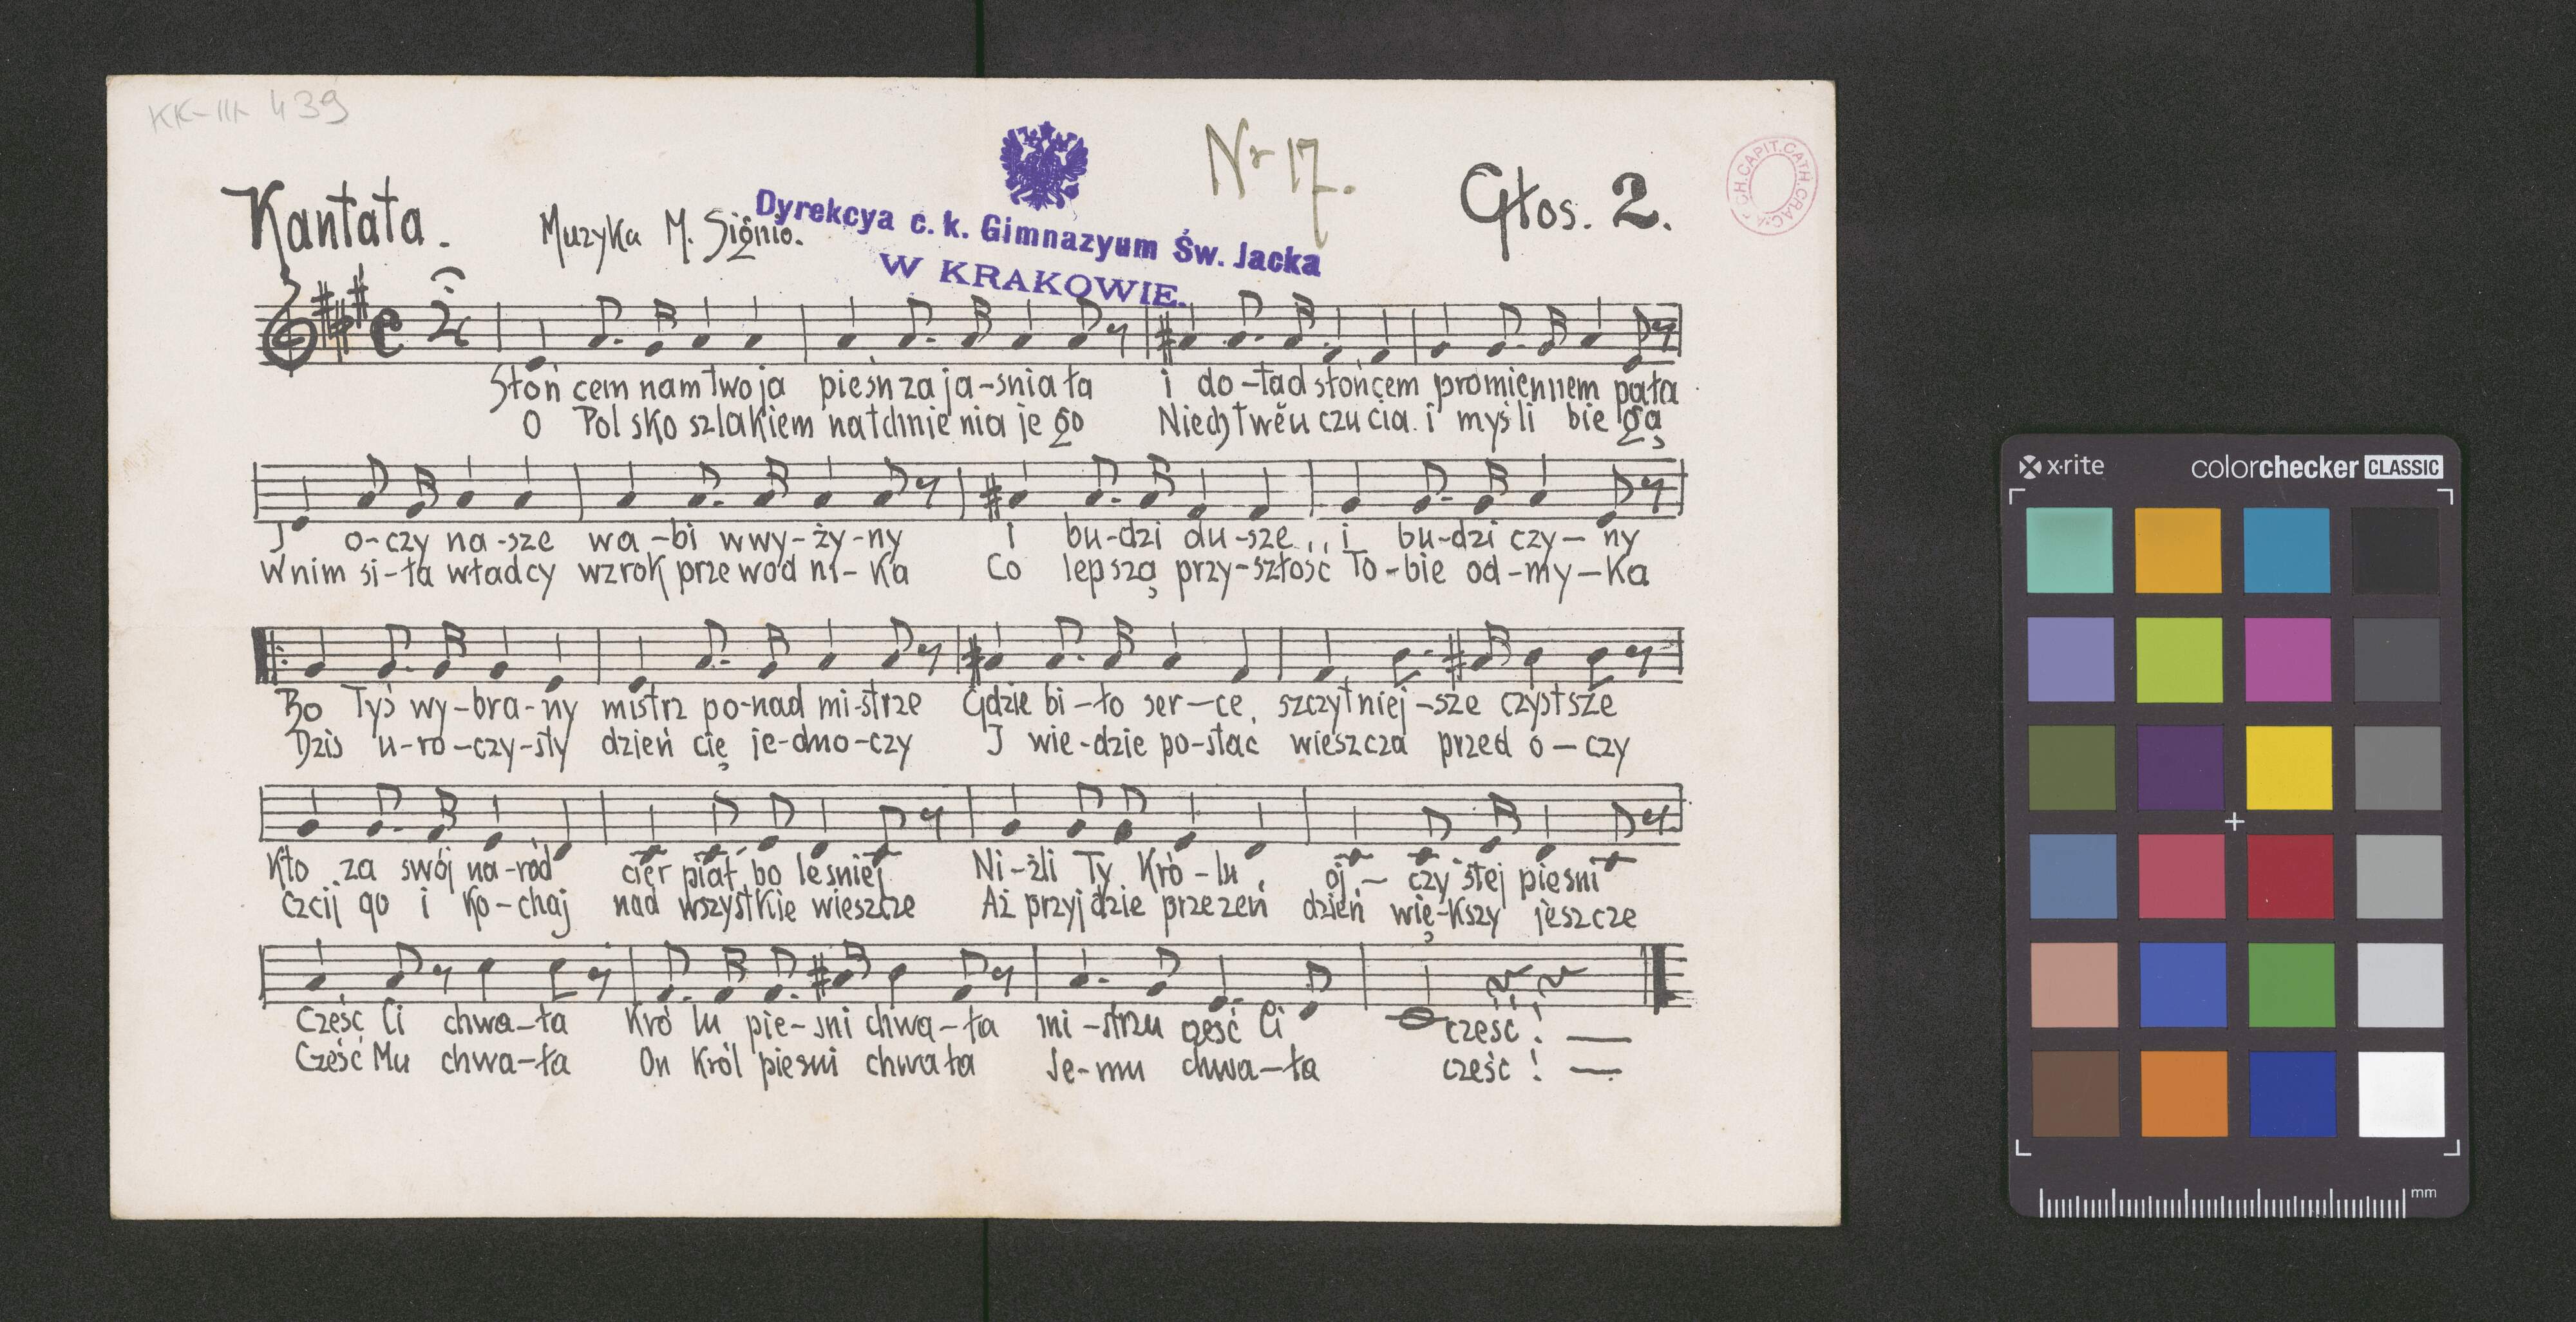 KK-III-439
Nr 17.
Kantata.
Muzyka M. Signio.
Dyrekcya c. k. Gimnazyum Św. Jacka
W KRAKOWIE.
Głos. 2.
CH.CAPIT.CATH.CRAC
Słoń cem nam twoja pieśń za ja-śnia ła i do-tąd słońcem promiennem pała
O Pol sko szlakiem natchnie nia je go Niech twe u czu cia i myśli bie gą
J o-czy na-sze wa-bi w wy-ży-ny i bu-dzi du-sze, i bu-dzi czy-ny
W nim si-ła władcy wzrok prze wod ni-ka Co lepszą przy-szłość To-bie od-my-ka
Bo Tyś wy-bra-ny mistrz po-nad mi-strze Gdzie bi-ło ser-ce, szczytniej-sze czystsze
Dziś u-ro-czy-sty dzień cię je-dno-czy J wie-dzie po-stać wieszcza przed o-czy
Kto za swój na-ród cier piał bo leśniej Ni-żli Ty Kró-lu oj- czy stej pieśni
Czcij go i ko-chaj nad wszystkie wieszcze Aż przyjdzie przezeń dzień wię-kszy jeszcze
Cześć Ci chwa-ła Kró lu pie-śni chwa-ła mi-strzu cześć Ci cześć! —
Cześć Mu chwa-ła On Król pieśni chwała Je-mu chwa-ła cześć! —
x·rite
colorchecker CLASSIC
mm